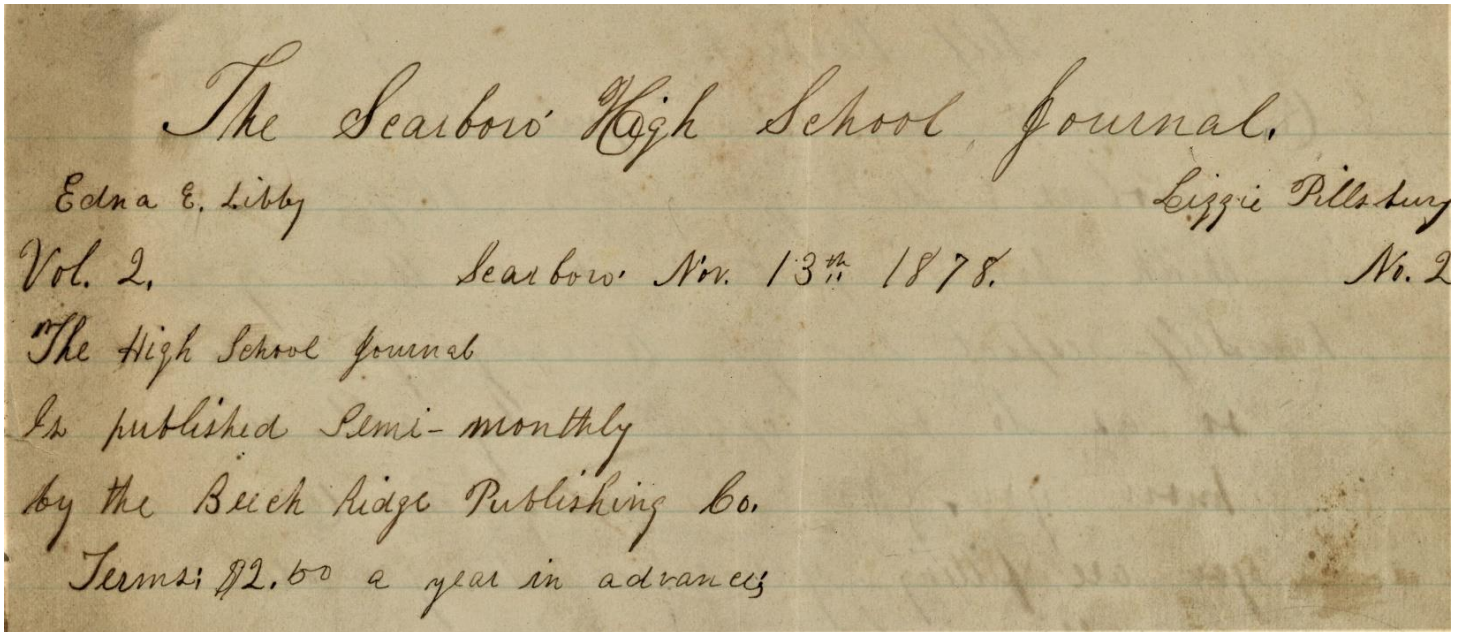 The Scarboro' High School Journal.
Edna E. Libby Lizzie Pillsbury
Vol. 2. Scarboro' Nov. 13th 1878. No. 2
The High School Journal
Is published Semi-monthly
by the Beech Ridge Publishing Co.
Terms: $2.00 a year in advance;